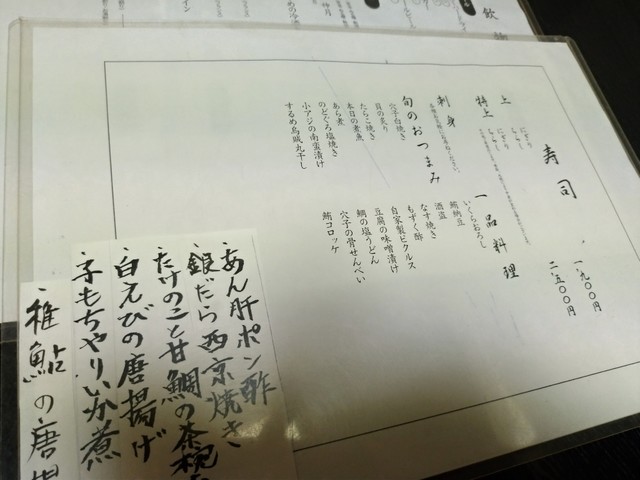 寿司
上
にぎり
ちらし
一、九〇〇円
特上
にぎり
ちらし
二、五〇〇円
刺身
旬のおつまみ
穴子白焼き
貝の炙り
たらこ焼き
本日の煮魚
あら煮
のどぐろ塩焼き
小アジの南蛮漬け
するめ烏賊丸干し
一品料理
いくらおろし
鮪納豆
酒盗
なす焼き
もずく酢
自家製ピクルス
豆腐の味噌漬け
鯛の塩うどん
穴子の骨せんべい
鮪コロッケ
あん肝ポン酢
銀だら西京焼き
たけのこと甘鯛の茶碗
白えびの唐揚げ
子もちやりいか煮
稚鮎の唐揚